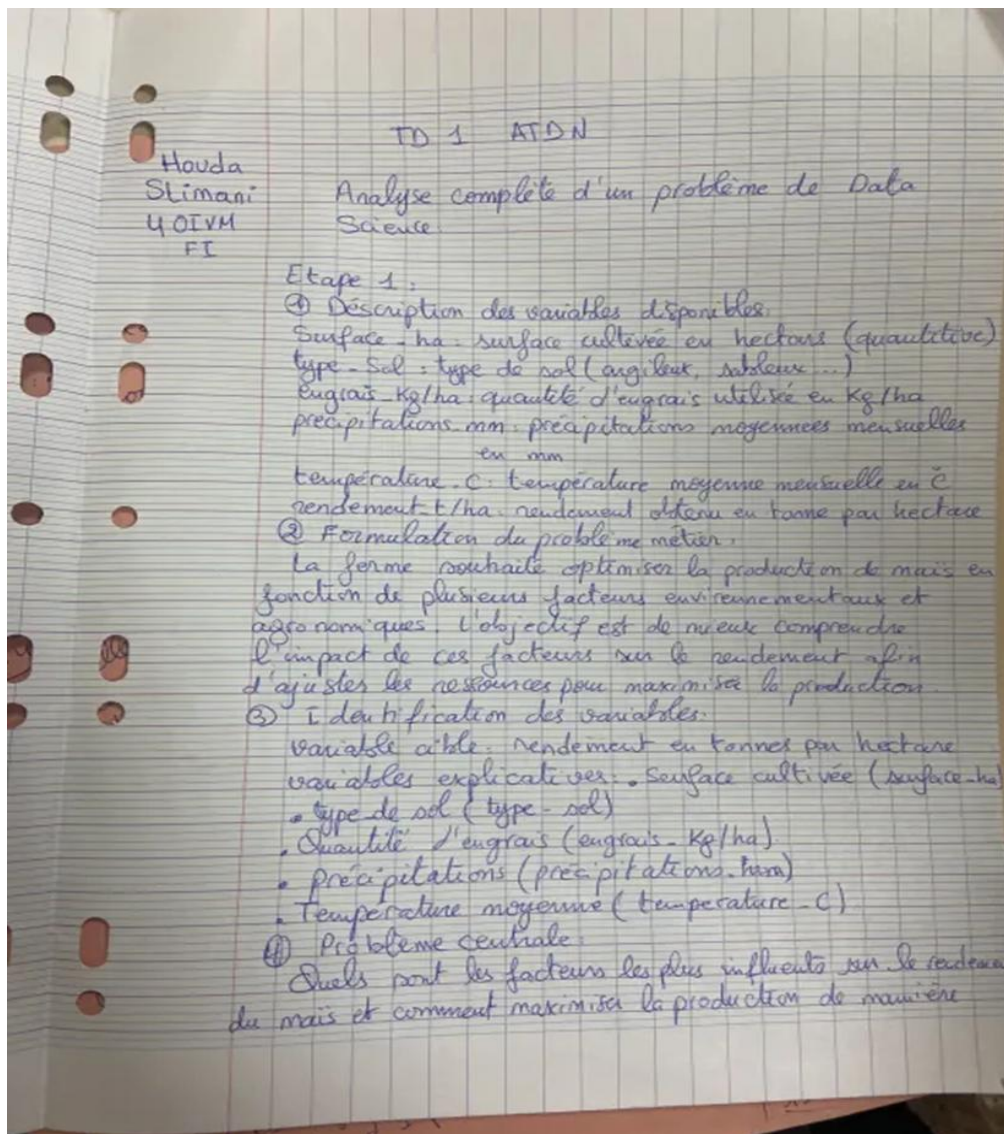 TD 1 ATDN
Houda
Slimani
4 OIVM
FI
Analyse complète d'un problème de Data
Science.
Etape 1 :
① Déscription des variables disponibles.
Surface-ha : surface cultivée en hectars (quantitive)
type-Sol : type de sol (argileux, sableux ...)
engrais-Kg/ha : quantité d'engrais utilisée en Kg/ha
précipitations-mm : précipitations moyennes mensuelles
en mm
température-C : température moyenne mensuelle en °C
rendement-t/ha : rendement obtenu en tonne par hectare
② Formulation du problème métier.
La ferme souhaite optimiser la production de mais en
fonction de plusieurs facteurs environnementaux et
agronomiques. L'objectif est de mieux comprendre
l'impact de ces facteurs sur le rendement afin
d'ajuster les ressources pour maximiser la production.
③ Identification des variables.
variable cible : rendement en tonnes par hectare
variables explicatives : • Surface cultivée (surface-ha)
• type de sol (type-sol)
• Quantité d'engrais (engrais-Kg/ha)
• précipitations (précipitations-mm)
• Température moyenne (température-C)
④ Problème centrale :
Quels sont les facteurs les plus influents sur le rendeme
du mais et comment maximiser la production de manière